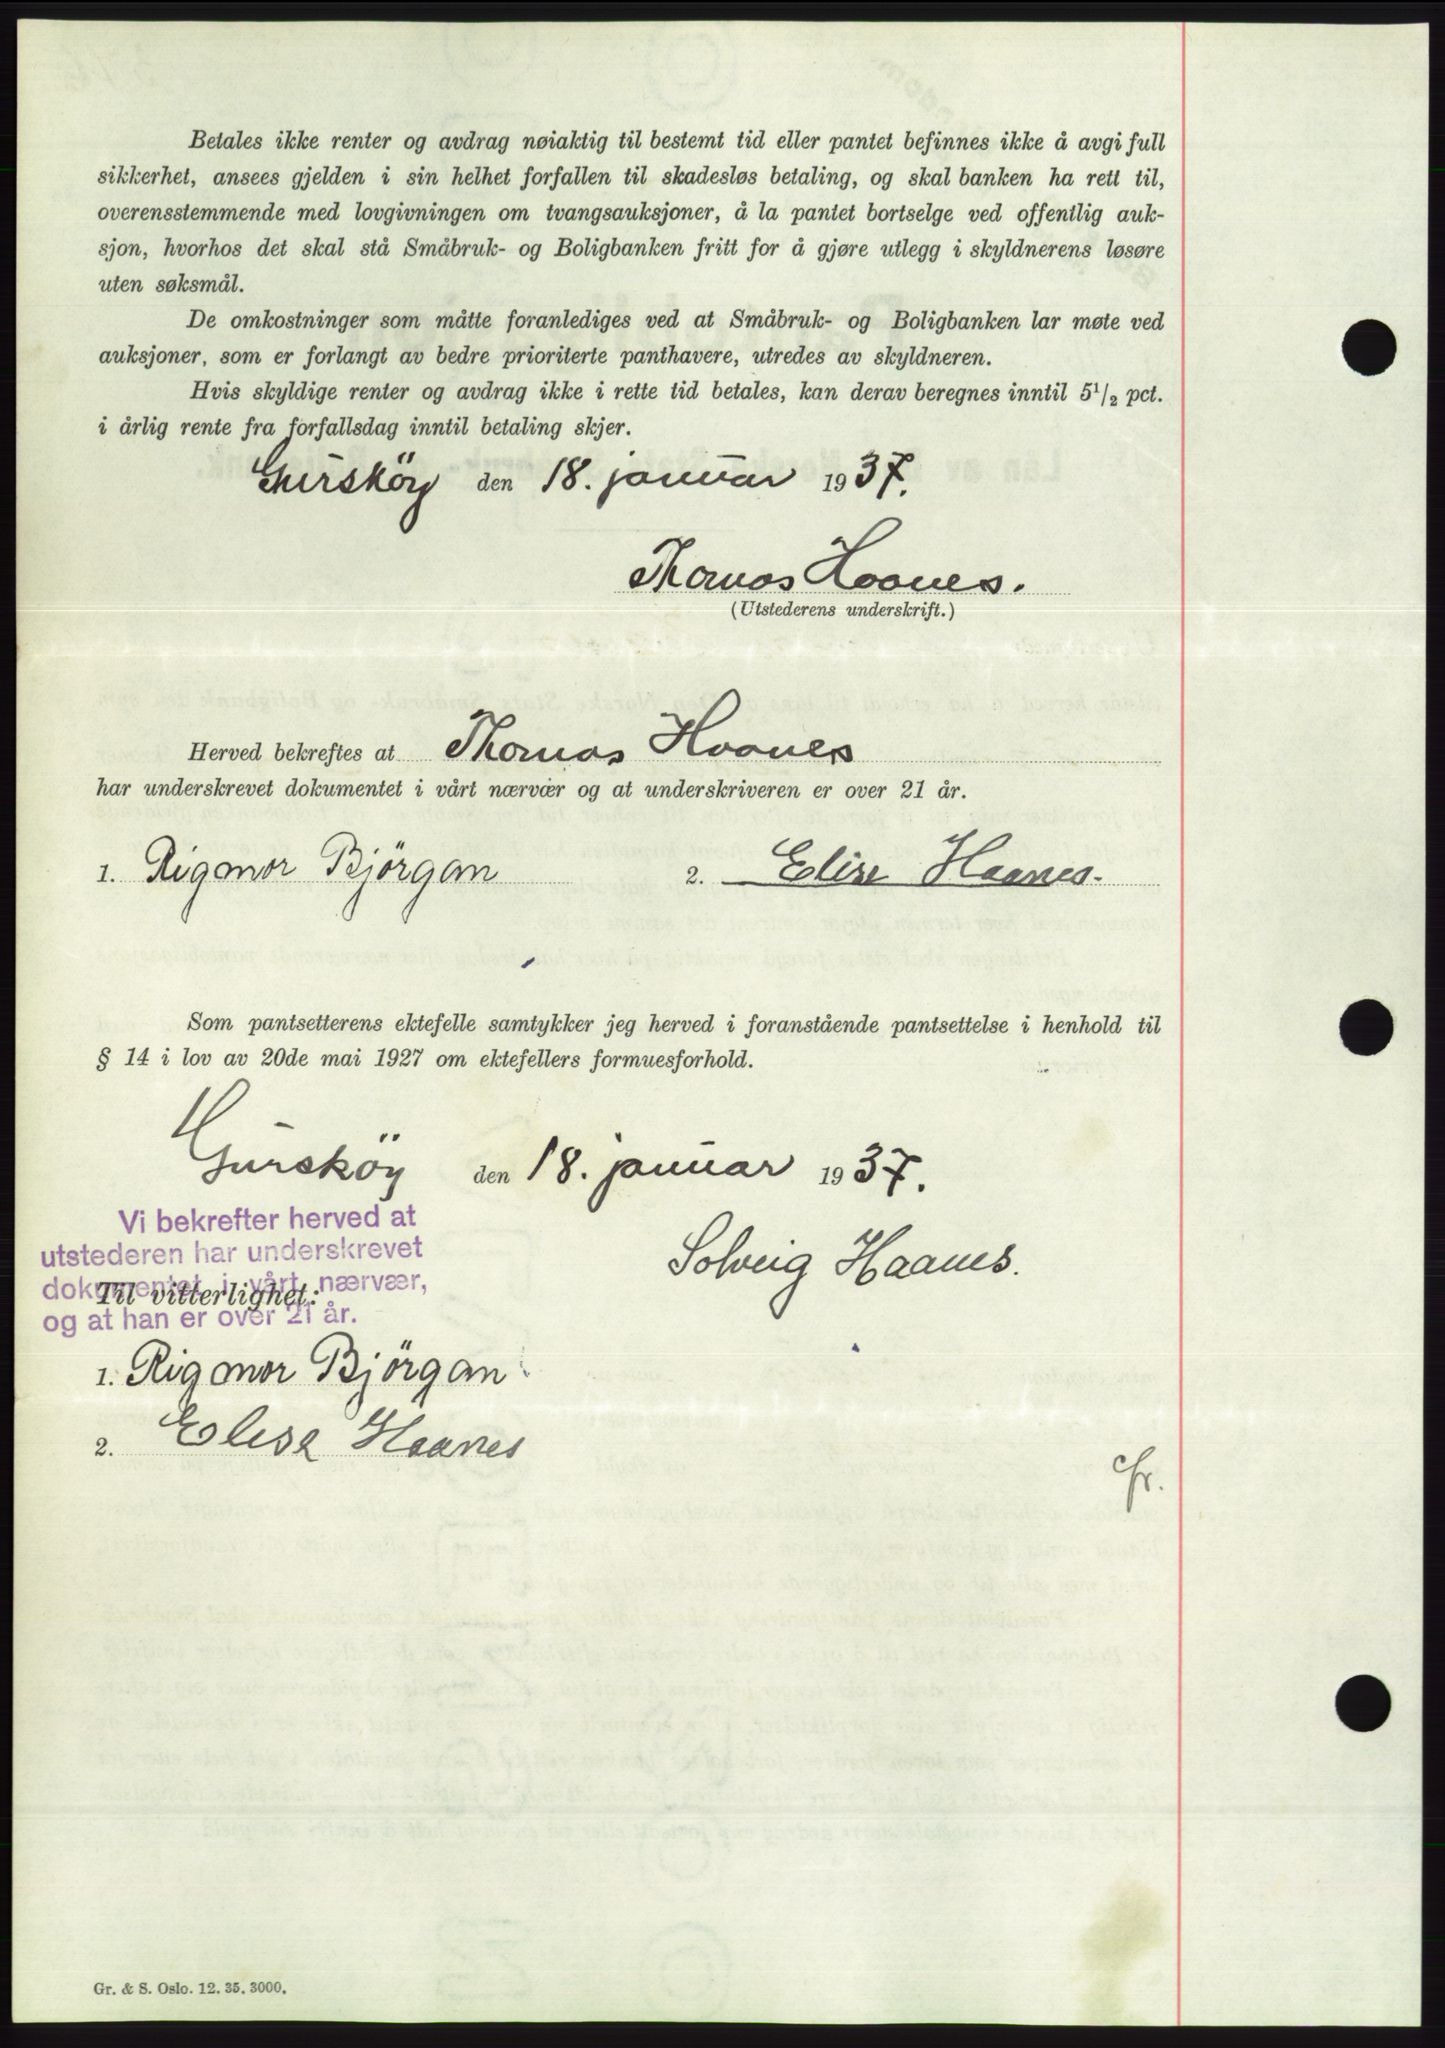 Betales ikke renter og avdrag nøiaktig til bestemt tid eller pantet befinnes ikke å avgi full
sikkerhet, ansees gjelden i sin helhet forfallen til skadesløs betaling, og skal banken ha rett til,
overensstemmende med lovgivningen om tvangsauksjoner, å la pantet bortselge ved offentlig auk-
sjon, hvorhos det skal stå Småbruk- og Boligbanken fritt for å gjøre utlegg i skyldnerens løsøre
uten søksmål.
De omkostninger som måtte foranlediges ved at Småbruk- og Boligbanken lar møte ved
auksjoner, som er forlangt av bedre prioriterte panthavere, utredes av skyldneren.
Hvis skyldige renter og avdrag ikke i rette tid betales, kan derav beregnes inntil 5 1/2 pct.
i årlig rente fra forfallsdag inntil betaling skjer.
Gursköy den 18. januar 1937.
Thomas Haanes.
(Utstederens underskrift.)
Herved bekreftes at Thomas Haanes
har underskrevet dokumentet i vårt nærvær og at underskriveren er over 21 år.
1. Rigmor Björgan 2. Elise Haanes.
Som pantsetterens ektefelle samtykker jeg herved i foranstående pantsettelse i henhold til
§ 14 i lov av 20de mai 1927 om ektefellers formuesforhold.
Gursköy den 18. januar 1937.
Vi bekrefter herved at
utstederen har underskrevet
dokumentet i vårt nærvær,
og at han er over 21 år.
Solveig Haanes.
Til vitterlighet:
1. Rigmor Björgan
2. Elise Haanes
Gr. & S. Oslo. 12. 35. 3000.